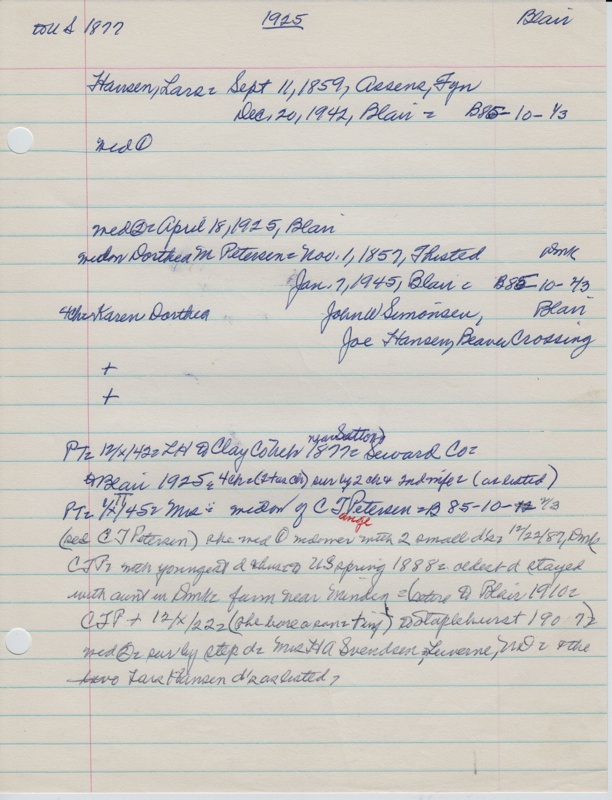 to U S 1877 1925 Blair
Hansen, Lars = Sept 11, 1859, Assens, Fyn
Dec. 20, 1942, Blair = B85-10-1/3
wed ①
wed ② = April 18, 1925, Blair
widow Dorthea M Petersen = Nov. 1, 1857, Thisted Dmk
Jan. 7, 1945, Blair = B85-10-2/3
4ch = Karen Dorthea John W Simonsen, Blair
Joe Hansen, Beaver Crossing
+
+
near Sutton)
PT = 12/x/42 = LH to Clay Co Nebr 1877 = Seward Co =
to Blair 1925 = 4ch = (2 + as ch) sur by 2 ch & 2nd wife = (as listed)
PT = 1/11/45 = Mrs = widow of C T Petersen = B 85-10-2/3
ange
(see C T Petersen) she wed ① widower with 2 small d's = 12/22/87, Dmk
CTP = with youngest d US spring 1888 = oldest d stayed
with aunt in Dmk = farm near Minden = to Blair 1910 =
CTP + 12/x/22 = (she bore a son = + inf) to Staplehurst 190
wed ② = sur by step d = Mrs H A Svendsen, Luverne, ND = & the
two Lars Hansen d's as listed,